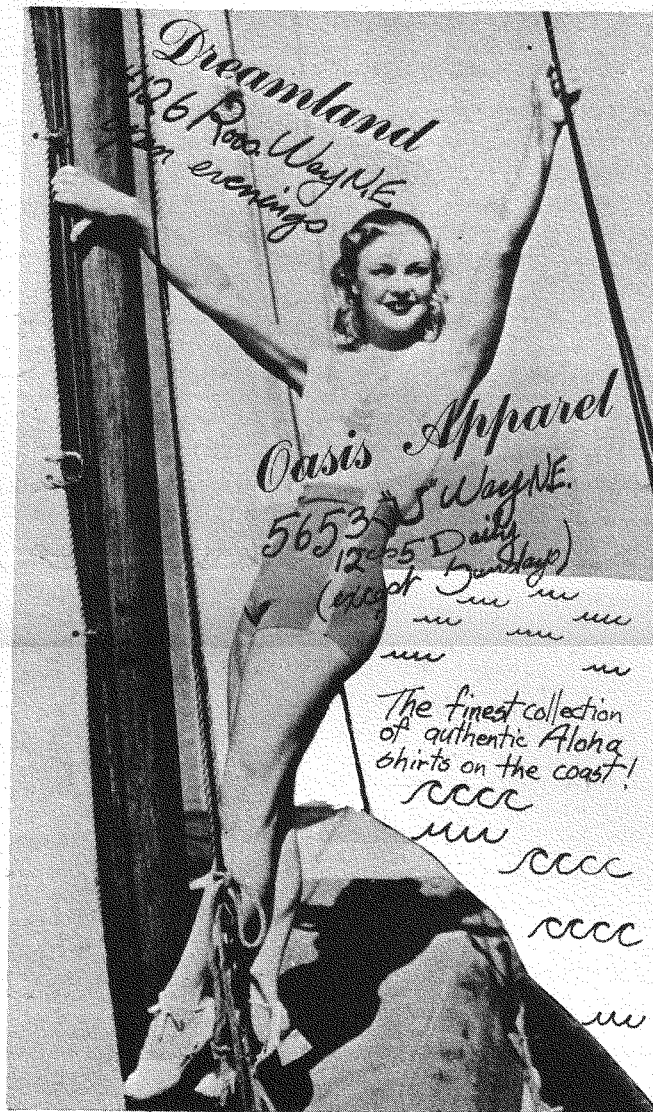 Dreamland
4126 Roos. Way N.E.
open evenings
Oasis Apparel
5653 Way NE.
12 to 5 Daily
(except Sundays)
The finest collection
of authentic Aloha
shirts on the coast!